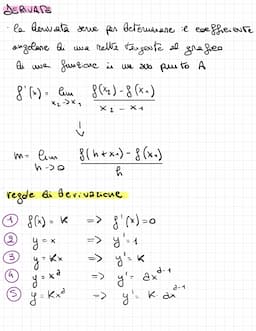 DERIVATE
• la derivata serve per determinare il coefficiente
angolare di una retta tangente al grafico
di una funzione in un suo punto A
f'(x) = lim x₂→x₁ f(x₂) - f(x₁) / x₂ - x₁
↓
m = lim h→0 f(h+x₁) - f(x₁) / h
regole di derivazione
① f(x) = K => f'(x) = 0
② y = x => y' = 1
③ y = Kx => y' = K
④ y = xᵃ => y' = axᵃ⁻¹
⑤ y = Kxᵃ -> y' = K · axᵃ⁻¹